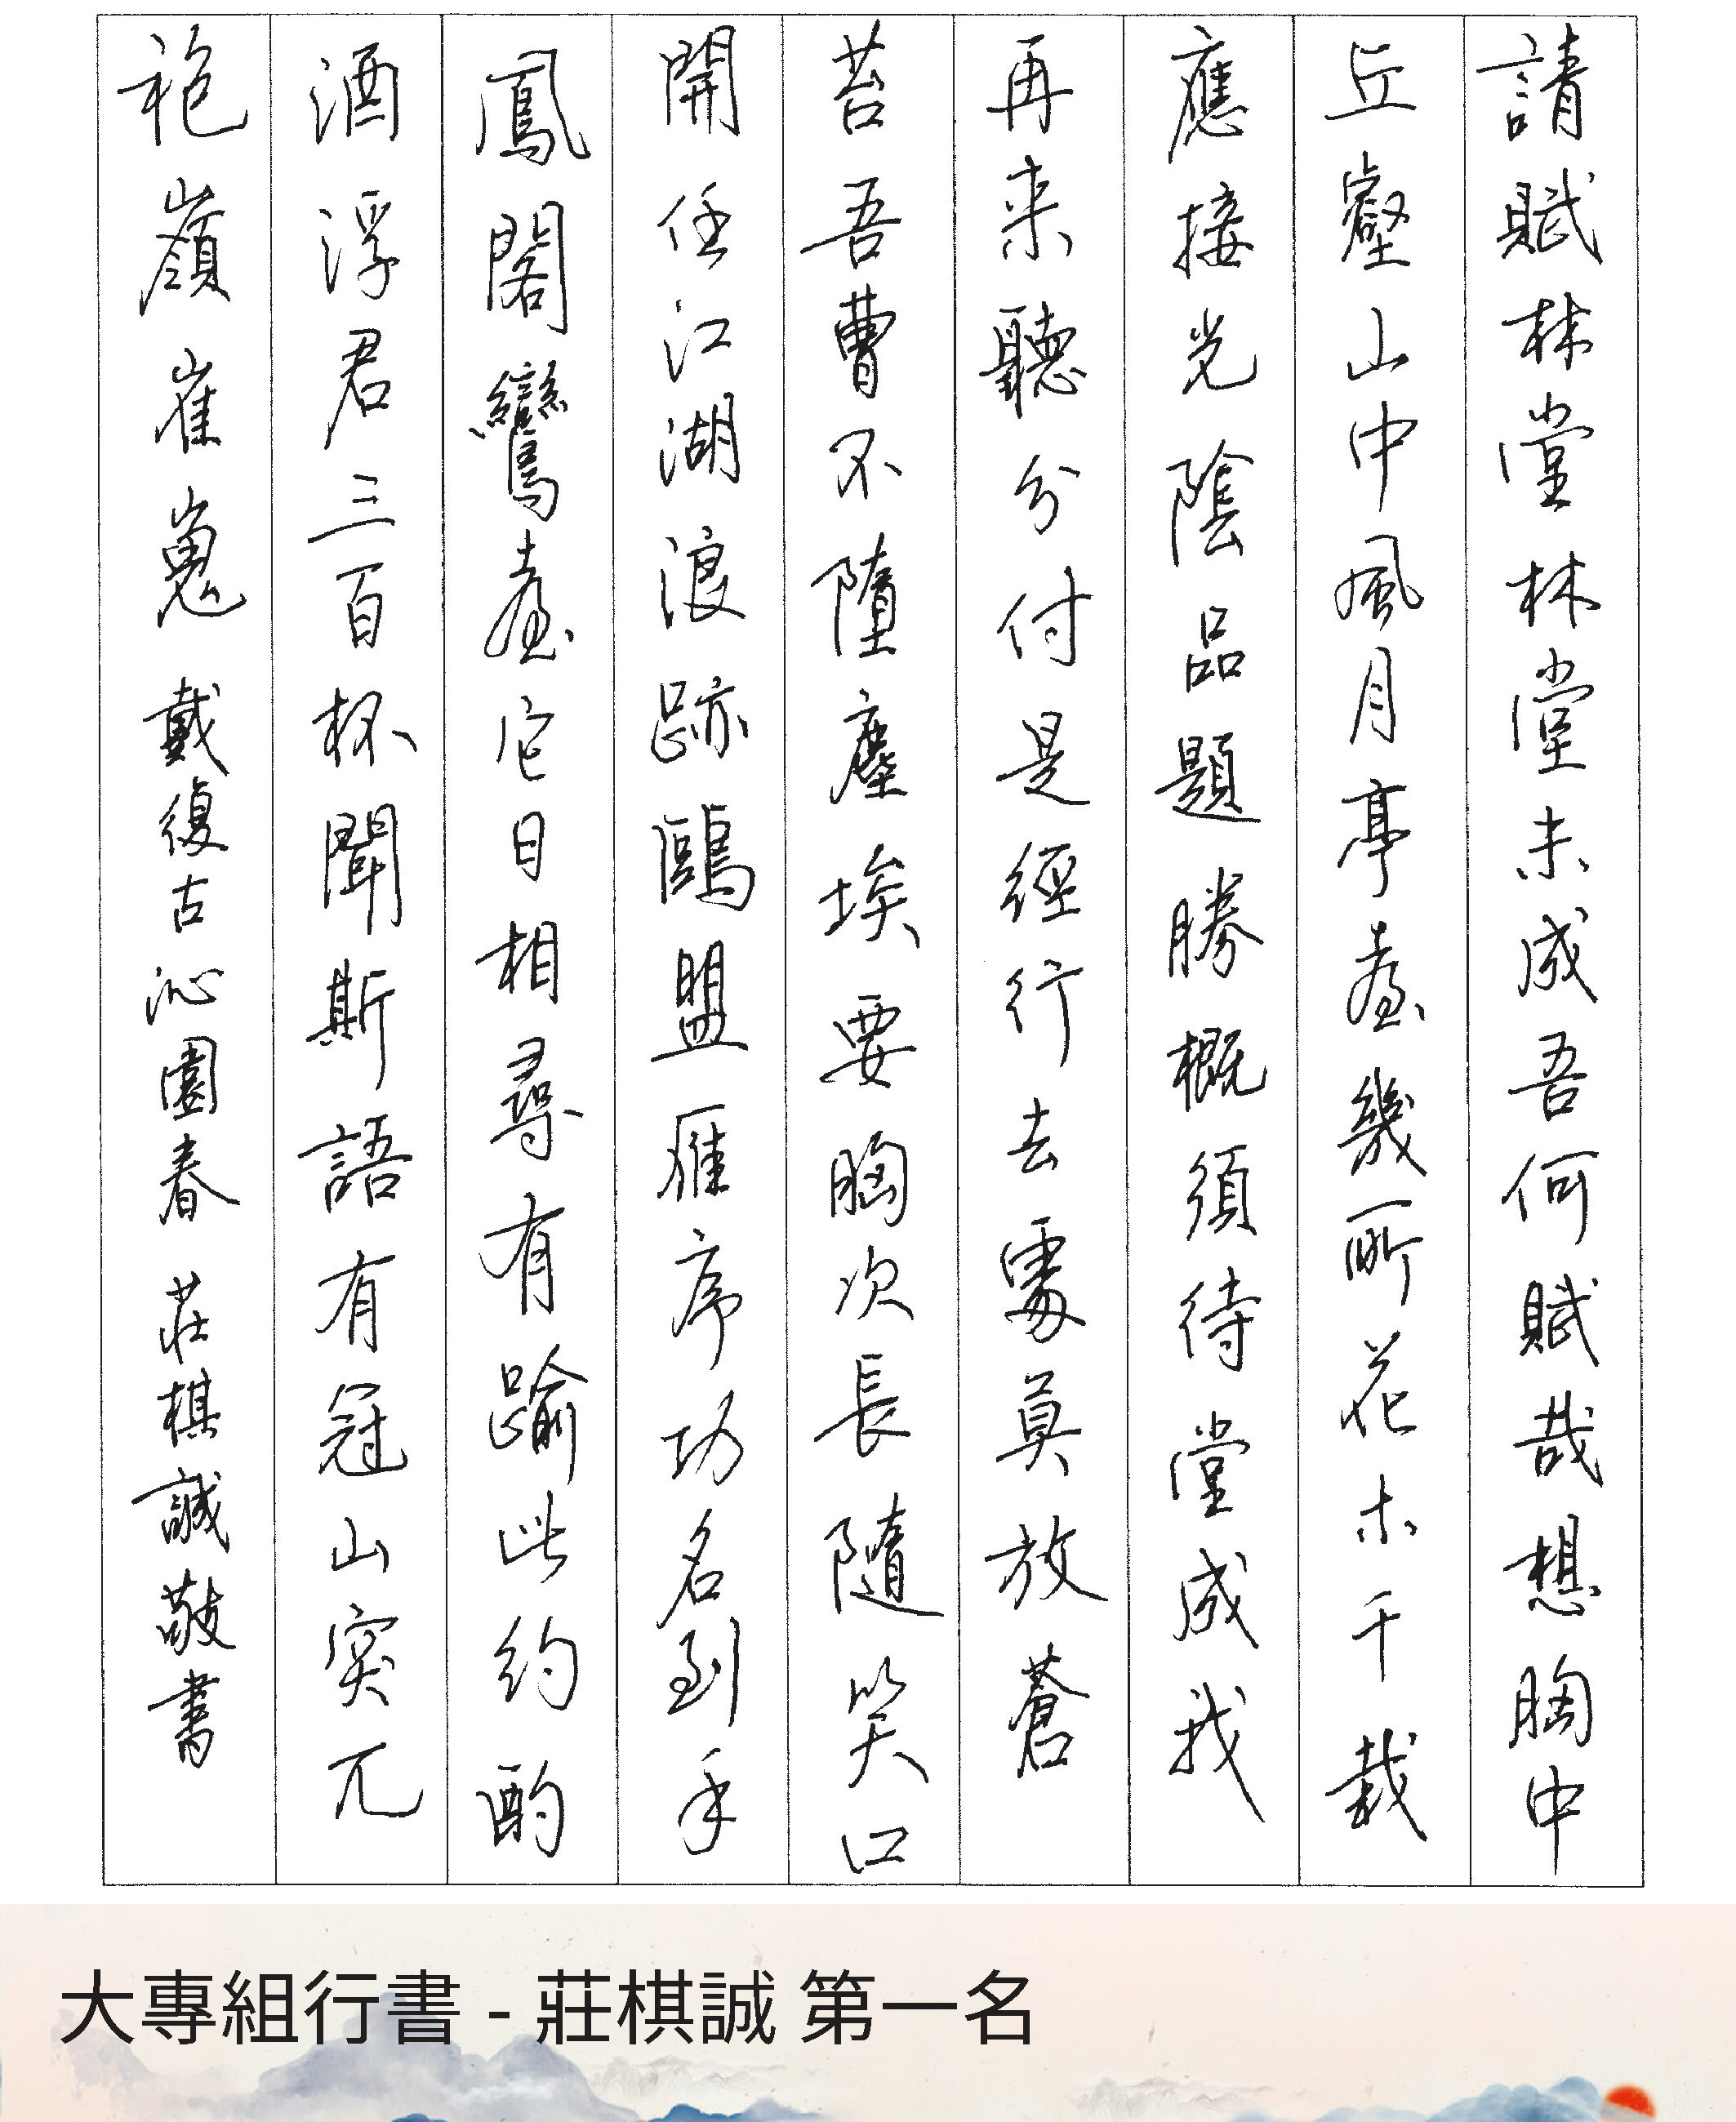 請賦林堂林堂未成吾何賦哉想胸中
丘壑山中風月亭臺幾所花木千栽
應接光陰品題勝概須待堂成我
再来聽分付是經行去處莫放蒼
苔吾曹不墮塵埃要胸次長隨笑口
開任江湖浪跡鷗盟雁序功名到手
鳳閣鸞臺它日相尋有踰此約酌
酒浮君三百杯聞斯語有冠山突兀
袍嶺崔嵬 戴復古 沁園春 莊棋誠敬書
大專組行書 - 莊棋誠 第一名